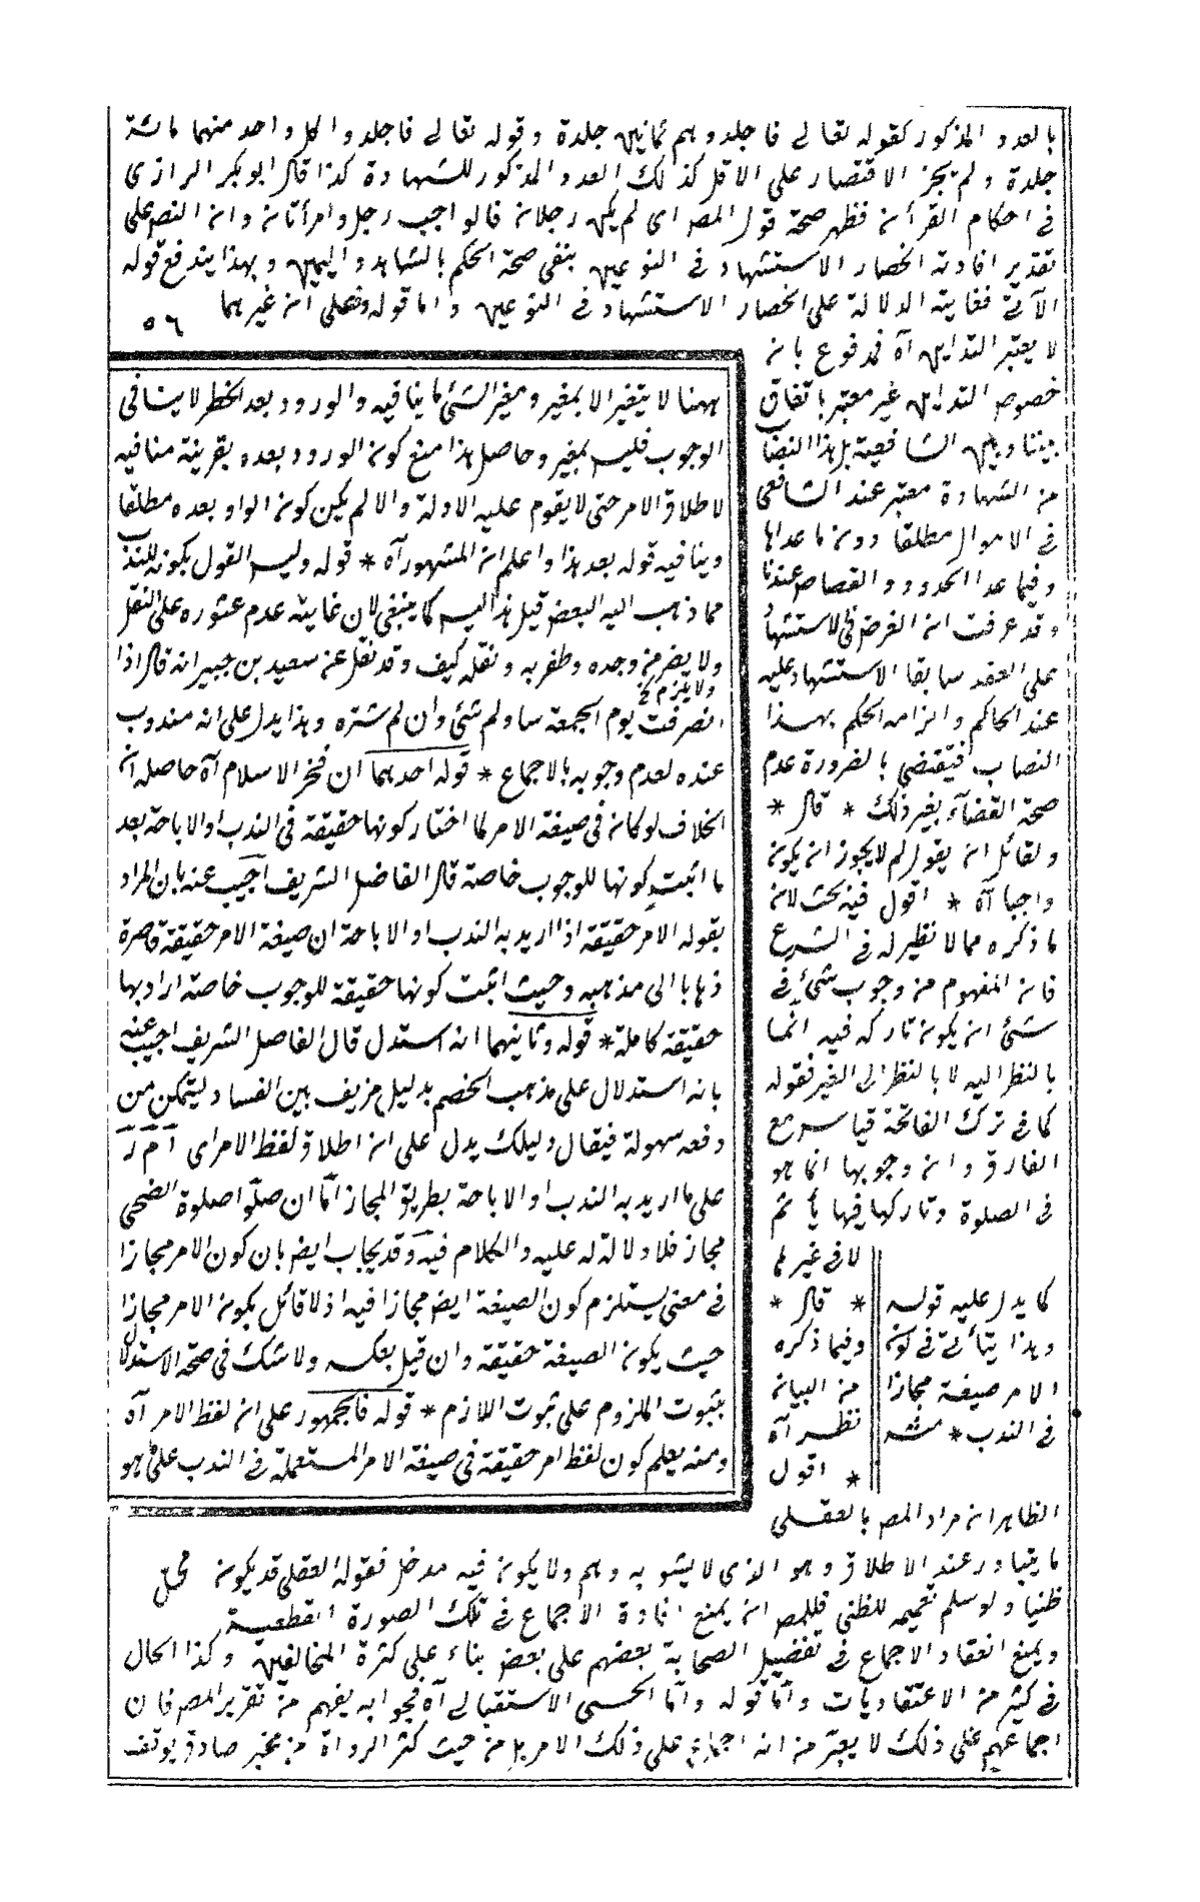 بالعدد المذكور كقوله تعالى فاجلدوهم ثمانين جلدة وقوله تعالى فاجلدوا كل واحد منهما مائة
جلدة ولم يجز الاقتصار على الاقل كذلك العدد المذكور للشهادة كذا قال ابو بكر الرازى
فى احكام القرأن فظهر صحة قول المص اى لم يكن رجلان فالواجب رجل وامرأتان وان النص على
تقدير افادته انحصار الاستشهاد فى النوعين ينفى صحة الحكم بالشاهد واليمين وبهذا يندفع قوله
الآتى فغايته الدلالة على انحصار الاستشهاد فى النوعين واما قوله وفعلى ان غيرهما
٥٦
لا يعتبر التداين آه فمدفوع بان
خصوص التداين غير معتبر باتفاق
بيننا وبين الشافعية بل هذا النصاب
من الشهادة معتبر عند الشافعى
فى الاموال مطلقا دون ما عداها
وفيما عدا الحدود والقصاص عندنا
وقد عرفت ان الغرض فى الاستشهاد
على العقد سابقا الاستشهاد عليه
عند الحاكم والزامه الحكم بهذا
النصاب فيقتضى بالضرورة عدم
صحة القضاء بغير ذلك * قال *
ولقائل ان يقول لم لا يجوز ان يكون
واجبا آه * اقول فيه بحث لان
ما ذكره مما لا نظير له فى الشرع
فان المفهوم من وجوب شئ فى
شئ ان يكون تاركه فيه آثما
بالنظر اليه لا بالنظر الى الغير فقوله
كما فى ترك الفاتحة قياس مع
الفارق وان وجوبها انما هو
فى الصلوة وتاركها فيها يأثم
لا فى غيرها
* قال *
وفيما ذكره
من البيان
نظر آه
* اقول
كما يدل عليه قوله
وهذا يتأتى فى كون
الامر صيغة مجازا
فى الندب * منه
الظاهر ان مراد المص بالعقلى
ما يتبادر عند الاطلاق وهو الذى لا يشوبه وهم ولا يكون فيه مدخل فقوله العقلى قد يكون محل
ظنيا ولو سلم تعميمه للظنى فللمص ان يمنع افادة الاجماع فى تلك الصورة القطعية
ويمنع انعقاد الاجماع فى تفضيل الصحابة بعضهم على بعض بناء على كثرة المخالفين وكذا الحال
فى كثير من الاعتقاديات وأما قوله وأما الحسى الاستقبالى آه فجوابه يفهم من تقرير المص فان
اجماعهم على ذلك لا يعتبر من انه اجماع على ذلك الامر بل من حيث كثر الرواة من مخبر صادق يوقف
ههنا لا يتغير الا بمغير ومغير الشئ ما ينافيه والورود بعد الحظر لا ينافى
الوجوب فليس بمغير وحاصل هذا منع كون الورود بعده بقرينة منافيه
لاطلاق الامر حتى لا يقوم عليه الادلة والا لم يكن كون الوا وبعده مطلقا
وينافيه قوله بعد هذا واعلم ان المشهور آه * قوله وليس القول بكونه للندب
مما ذهب اليه البعض قيل هذا ليس كما ينبغى لان غايته عدم عشوره على النقل
ولا يضر من وجده وظفر به ونقله كيف وقد نقل عن سعيد بن جبير انه قال اذا
ولا يلزم
انصرفت يوم الجمعة ساوم شئ وان لم تشتره وهذا يدل على انه مندوب
عنده لعدم وجوبه بالاجماع * قوله احدهما ان فخر الاسلام آه حاصله ان
الخلاف لو كان فى صيغة الامر لما اختار كونها حقيقة فى الندب او الاباحة بعد
ما اثبت كونها للوجوب خاصة قال الفاضل الشريف اجيب عنه بان المراد
بقوله الامر حقيقة اذا اريد به الندب او الاباحة ان صيغة الامر حقيقة قاصرة
ذهابا الى مذهبه وحيث اثبت كونها حقيقة للوجوب خاصة اراد بها
حقيقة كاملة * قوله وثانيهما انه استدل قال الفاضل الشريف اجيب عنه
بانه استدلال على مذهب الخصم بدليل مزيف بين الفساد ليتمكن من
دفعه سهولة فيقال دليلك يدل على ان اطلاق لفظ الامر اى ا م ر
على ما اريد به الندب او الاباحة بطريق المجاز اما ان صلوا صلوة الضحى
مجاز فلا دلالة له عليه والكلام فيه وقد يجاب ايض بان كون الامر مجازا
فى معنى يستلزم كون الصيغة ايض مجازا فيه اذ لا قائل بكون الامر مجازا
حيث يكون الصيغة حقيقة وان قيل بعكسه ولا شك فى صحة الاستدلال
بثبوت الملزوم على ثبوت اللازم * قوله فالجمهور على ان لفظ الامر آه
ومنه يعلم كون لفظ امر حقيقة فى صيغة الامر المستعملة فى الندب على ما هو